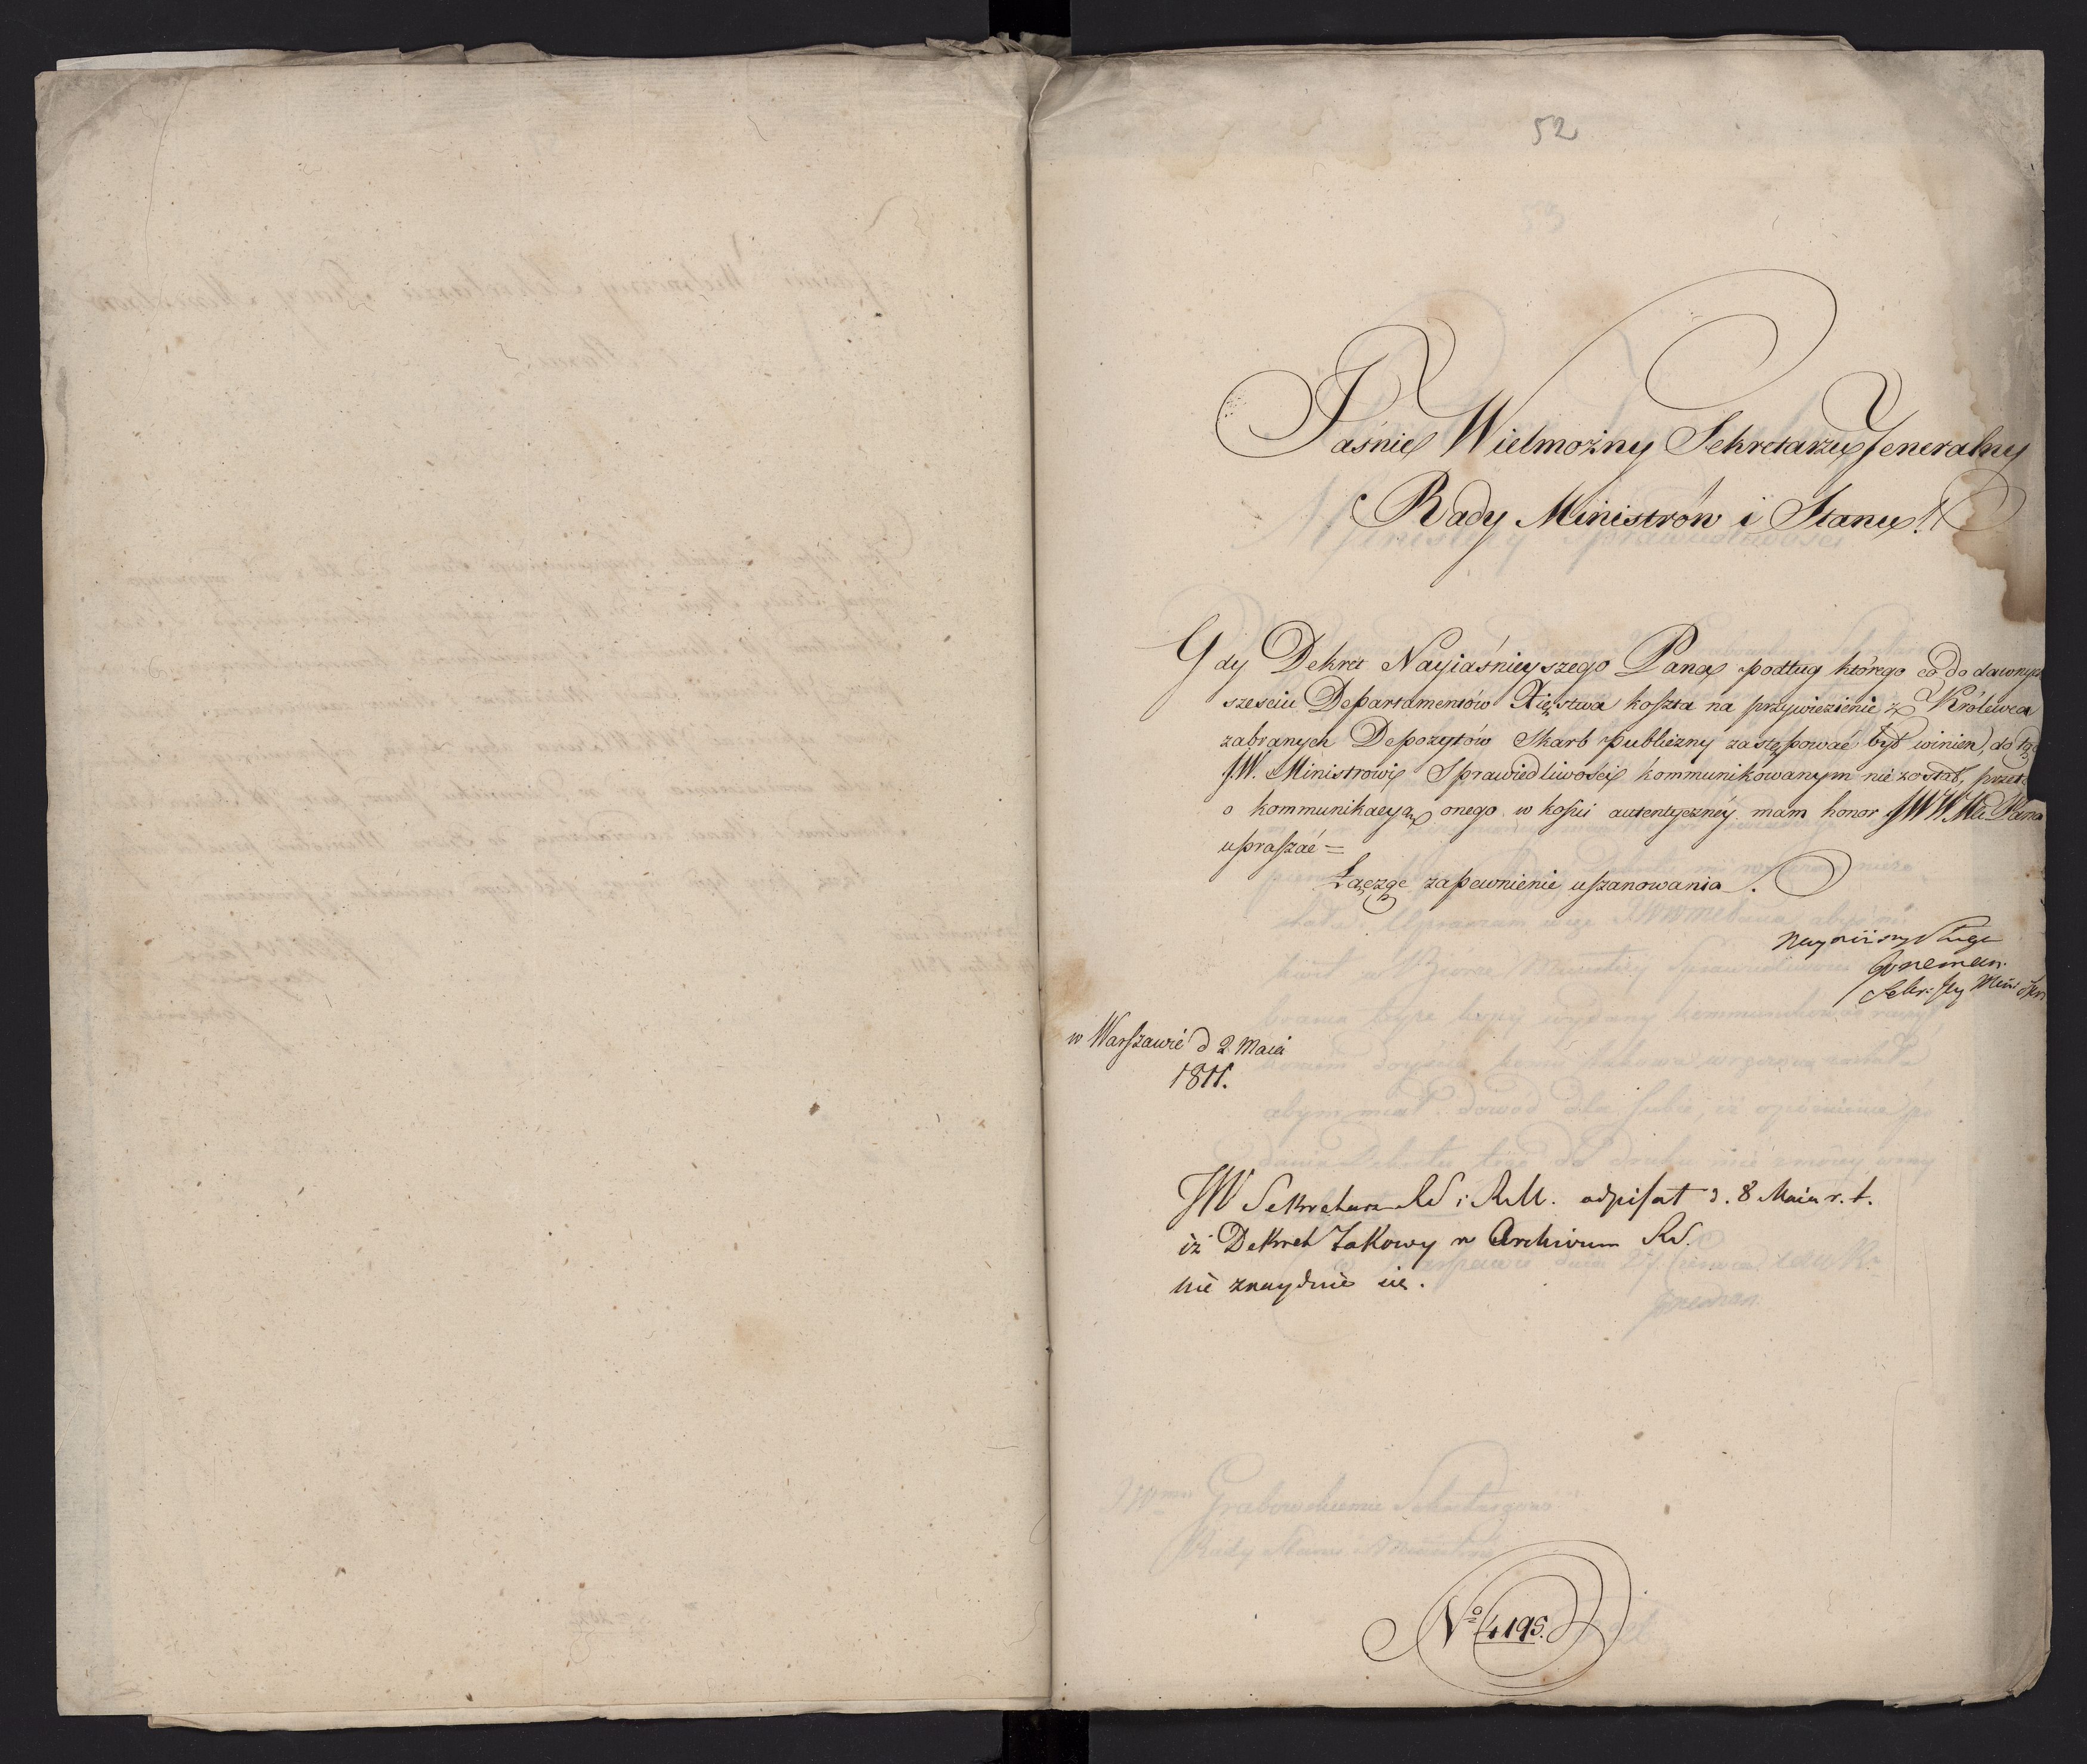 52
Jaśnie Wielmożny Sekretarzu Jeneralny
Rady Ministrów i Stanu!
Gdy Dekret Nayiaśnieyszego Pana podług którego co do dawnych
sześciu Departamentów Xięstwa koszta na przywiezienie z Królewca
zabranych Depozytów Skarb publiczny zastępować był winien, do tąd
JW. Ministrowi Sprawiedliwości kommunikowanym nie został, przeto
o kommunikacyą onego w kopii autentyczney mam honor JWWMć Pana
upraszać =
Łączę zapewnienie uszanowania.
Nayniższy Sługa
w Warszawie d 2 Maia
1811.
JW Sekretarz RS i RM. odpisał d. 8 Maia r. t.
iż Dekret takowy w Archivum RS.
nie znayduie się.
No 4195.